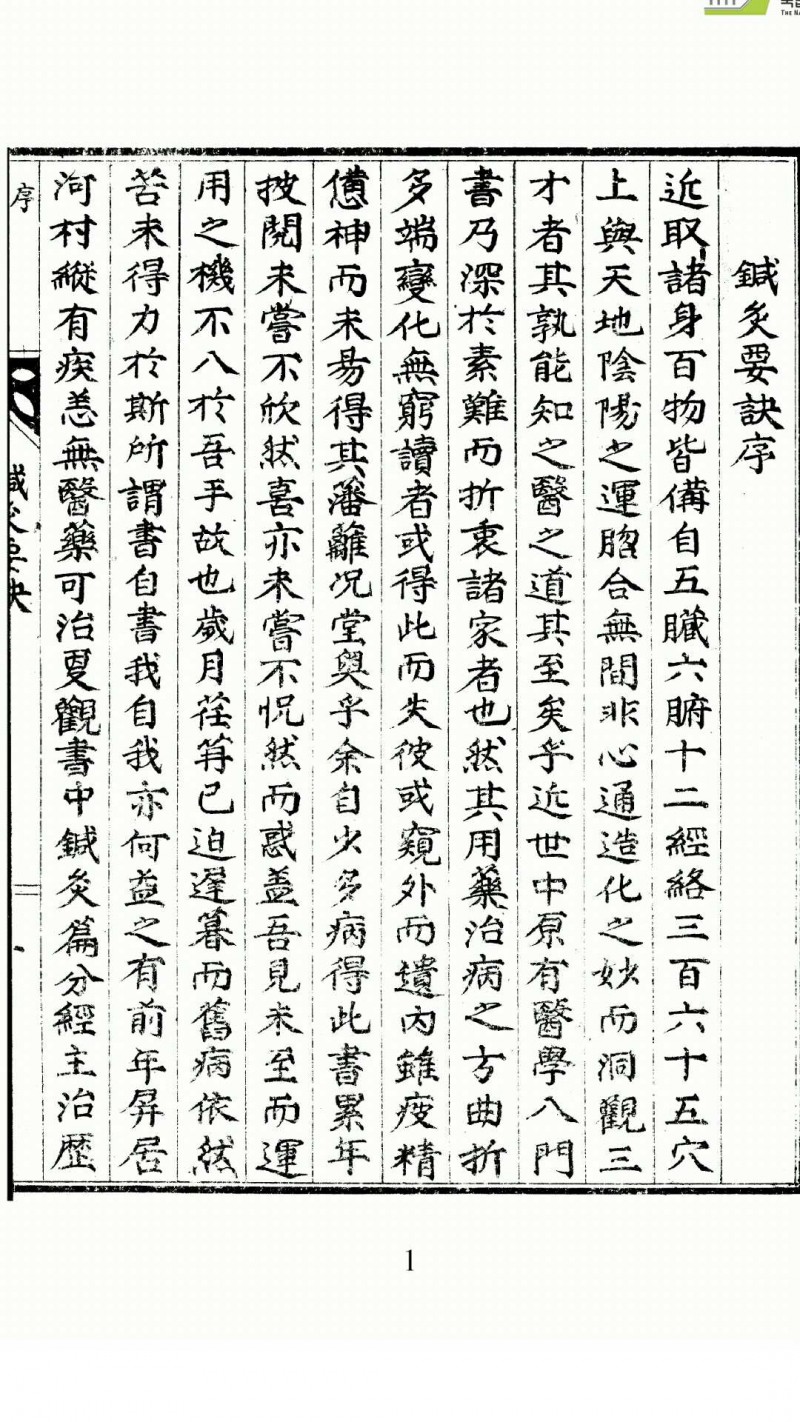 鍼灸要訣序
近取諸身百物皆備自五臟六腑十二經絡三百六十五穴
上與天地陰陽之運脗合無間非心通造化之妙而洞觀三
才者其孰能知之醫之道其至矣乎近世中原有醫學入門
書乃深於素難而折衷諸家者也然其用藥治病之方曲折
多端變化無窮讀者或得此而失彼或窺外而遺內雖疲精
憊神而未易得其藩籬況堂奧乎余自少多病得此書累年
披閱未嘗不欣然喜亦未嘗不怳然而惑盖吾見未至而運
用之機不入於吾手故也歲月荏苒已迫遲暮而舊病依然
苦未得力於斯所謂書自書我自我亦何益之有前年屏居
河村縱有疾恙無醫藥可治更觀書中鍼灸篇分經主治歷
序
鍼灸要訣
一
1
THE NA